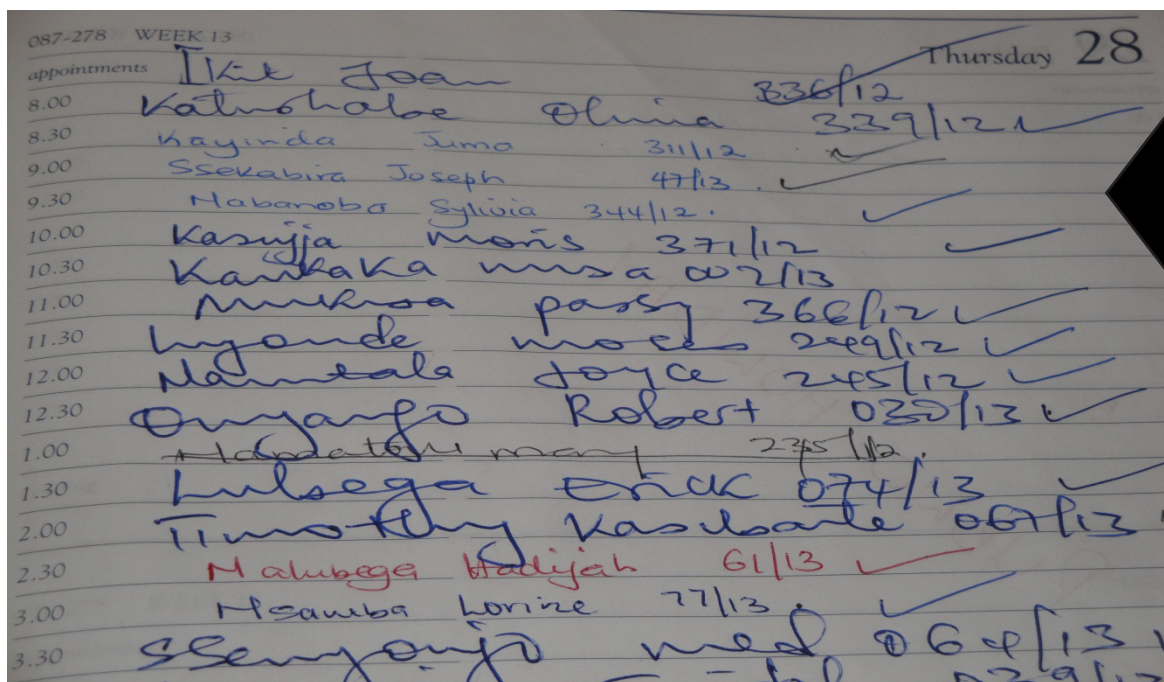 087-278 WEEK 13 Thursday 28
appointments Ikit Joan 336/12
8.00 Katushabe Olivia 339/12
8.30 Kayinda Juma 311/12
9.00 Ssekabira Joseph 47/13
9.30 Nabanoba Sylivia 344/12.
10.00 Kasujja moris 371/12
10.30 Kankaka musa 002/13
11.00 Mukosa passy 366/12
11.30 Lyande moses 249/12
12.00 Namtala Joyce 245/12
12.30 Onyango Robert 030/13
1.00 mary /12.
1.30 Lubega Erick 074/13
2.00 Timothy 067/13
2.30 Nalubega Hadijah 61/13
3.00 Nsamba Lorine 77/13.
3.30 Ssenyonjo med 064/13